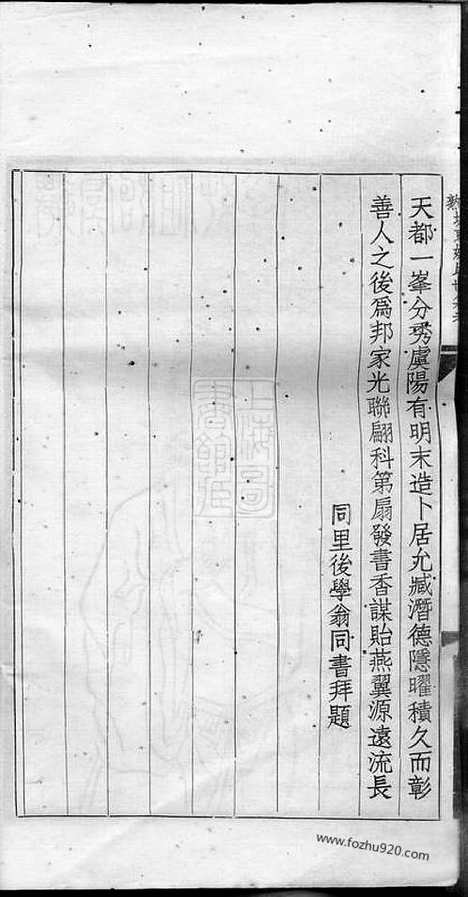 天都一峯分秀虞陽有明末造卜居允臧潛德隱曜積久而彰
善人之後爲邦家光聯翩科第扇發書香謀貽燕翼源遠流長
同里後學翁同書拜題
上海圖書館藏
www.fozhu920.com